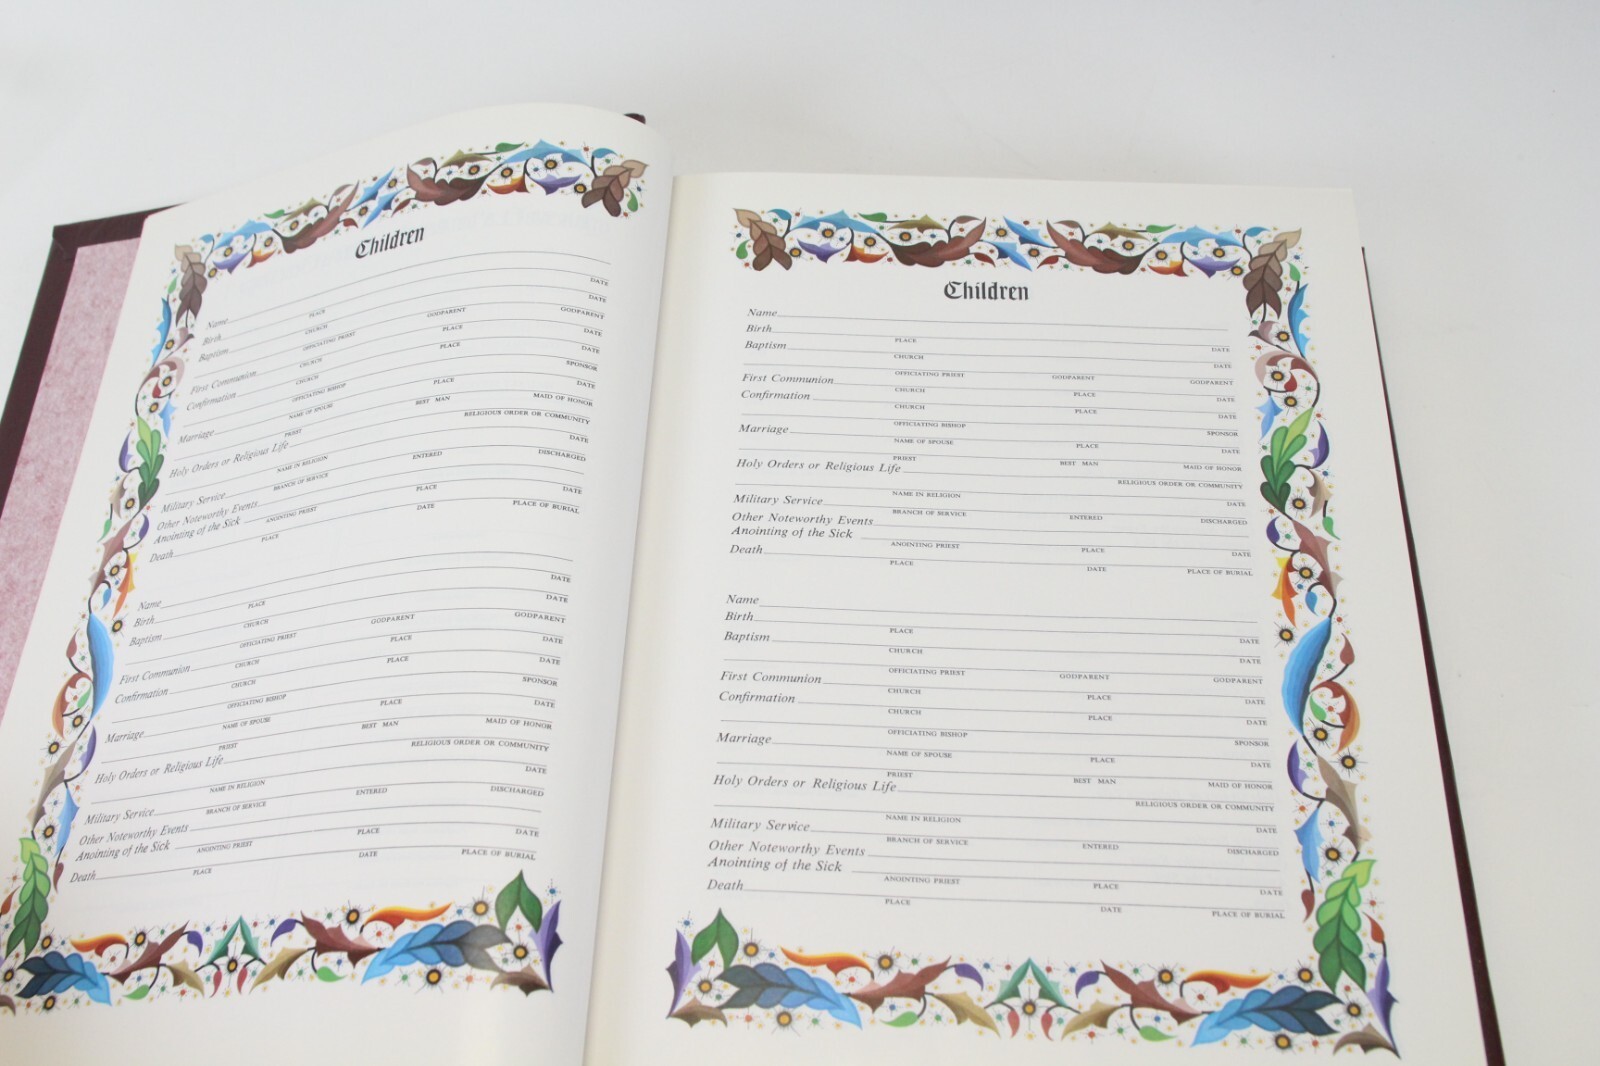 Children
Name
DATE
Birth PLACE DATE
Baptism CHURCH
OFFICIATING PRIEST GODPARENT GODPARENT
First Communion CHURCH PLACE DATE
Confirmation CHURCH PLACE DATE
OFFICIATING BISHOP SPONSOR
Marriage NAME OF SPOUSE PLACE DATE
PRIEST BEST MAN MAID OF HONOR
Holy Orders or Religious Life RELIGIOUS ORDER OR COMMUNITY
NAME IN RELIGION DATE
Military Service BRANCH OF SERVICE ENTERED DISCHARGED
Other Noteworthy Events
Anointing of the Sick ANOINTING PRIEST PLACE DATE
Death PLACE DATE PLACE OF BURIAL
Name
Birth PLACE DATE
Baptism CHURCH DATE
OFFICIATING PRIEST GODPARENT GODPARENT
First Communion CHURCH PLACE DATE
Confirmation CHURCH PLACE DATE
OFFICIATING BISHOP SPONSOR
Marriage NAME OF SPOUSE PLACE DATE
PRIEST BEST MAN MAID OF HONOR
Holy Orders or Religious Life RELIGIOUS ORDER OR COMMUNITY
NAME IN RELIGION DATE
Military Service BRANCH OF SERVICE ENTERED DISCHARGED
Other Noteworthy Events
Anointing of the Sick ANOINTING PRIEST PLACE DATE
Death PLACE DATE PLACE OF BURIAL
Children
Name
Birth PLACE DATE
Baptism CHURCH DATE
OFFICIATING PRIEST GODPARENT GODPARENT
First Communion CHURCH PLACE DATE
Confirmation CHURCH PLACE DATE
OFFICIATING BISHOP SPONSOR
Marriage NAME OF SPOUSE PLACE DATE
PRIEST BEST MAN MAID OF HONOR
Holy Orders or Religious Life RELIGIOUS ORDER OR COMMUNITY
NAME IN RELIGION DATE
Military Service BRANCH OF SERVICE ENTERED DISCHARGED
Other Noteworthy Events
Anointing of the Sick ANOINTING PRIEST PLACE DATE
Death PLACE DATE PLACE OF BURIAL
Name
Birth PLACE DATE
Baptism CHURCH DATE
OFFICIATING PRIEST GODPARENT GODPARENT
First Communion CHURCH PLACE DATE
Confirmation CHURCH PLACE DATE
OFFICIATING BISHOP SPONSOR
Marriage NAME OF SPOUSE PLACE DATE
PRIEST BEST MAN MAID OF HONOR
Holy Orders or Religious Life RELIGIOUS ORDER OR COMMUNITY
NAME IN RELIGION DATE
Military Service BRANCH OF SERVICE ENTERED DISCHARGED
Other Noteworthy Events
Anointing of the Sick ANOINTING PRIEST PLACE DATE
Death PLACE DATE PLACE OF BURIAL